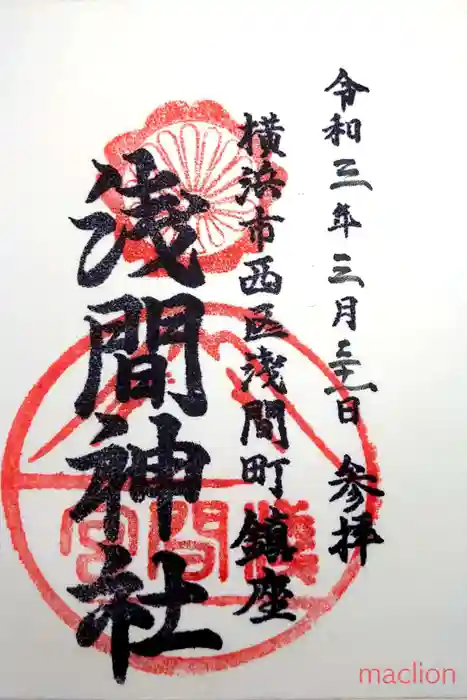 令和三年三月三十一日 参拝
横浜市西区浅間町鎮座
浅間神社
浅間宮
maclion